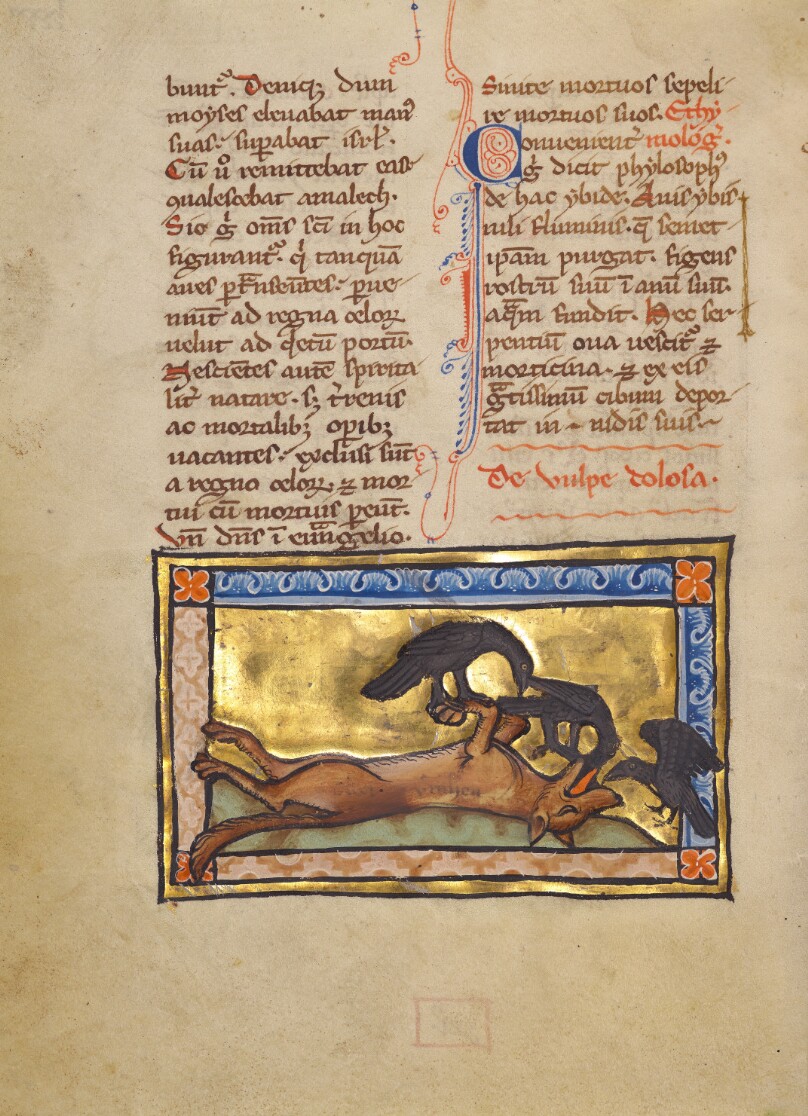 bunt᷑. Deniq; dum
moyses eleuabat man᷒
suas· sup̱abat isrl̓.
Cū u̓ remittebat eas
qualescebat amalech.
Sic g̓ om̄s sc̄i in hoc
figurant᷑. q̓ tanquā
aues p̱ṫnseūtes· p̱ue
niūt ad regna celoꝝ
uelut ad q̓etū portū.
Nescientes autē sp̄irita
lit̓ natare. sꝫ t̓renis
ac mortalibꝫ op̱ibꝫ
uacantes· exclusi sūt
a regno celoꝝ. ⁊ mor
tui cū mortuis p̱eūt.
Vn̄ dn̄s ī euuangelio.
Sinite mortuos sepeli
re mortuos suos. Ethy
Conuenient᷑ molog̓.
g̓ dicit phylosoph᷒
de hac ybide. Auis ybis
nili fluminis. q̄ semet
ip̄am purgat. figens
rostrū suū ī anū suū.
aq̄m fundit. Hec ser
pentiū oua uescit᷑ ⁊
morticina. ⁊ ex eis
g̓tissimū cibum depor
tat in nidis suis.
De uulpe dolosa.